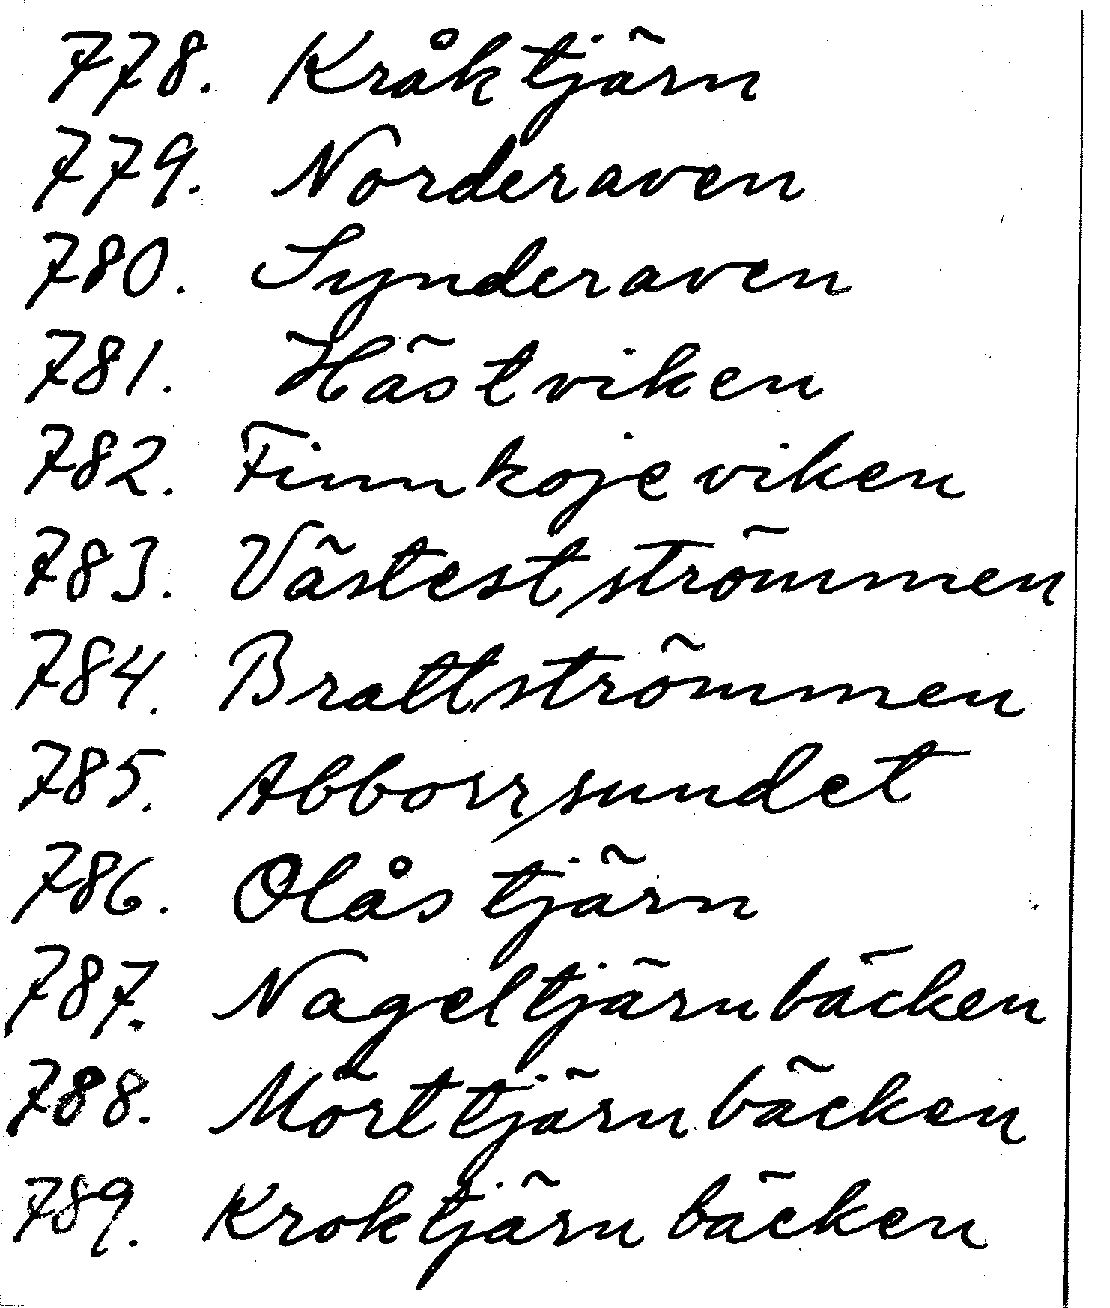 778. Kråktjärn
779. Norderaven
780. Synderaven
781. Hästviken
782. Finnkojeviken
783. Västestströmmen
784. Brattströmmen
785. Abborrsundet
786. Olåstjärn
787. Nageltjärnbäcken
788. Mörttjärnbäcken
789. Kroktjärnbäcken